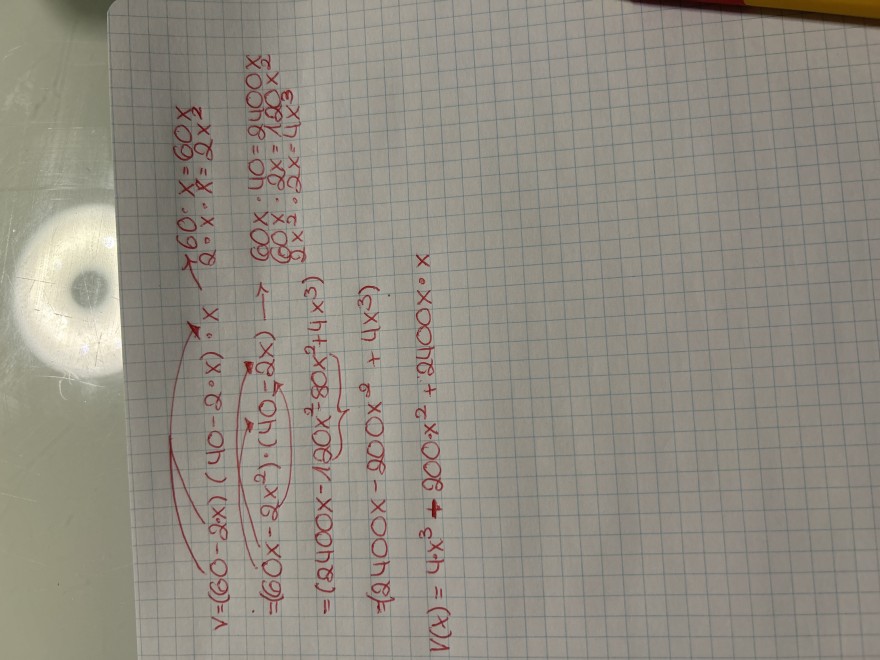 V=((60-2·x)(40-2·x)·x → 60·x=60x
2·x·x=2x²
=(60x-2x²)·(40-2x) → 60x·40=2400x
60x·2x=120x²
2x²·2x=4x³
=(2400x-120x²-80x²+4x³)
=(2400x-200x²+4x³)
V(x)=4·x³-200·x²+2400x·x